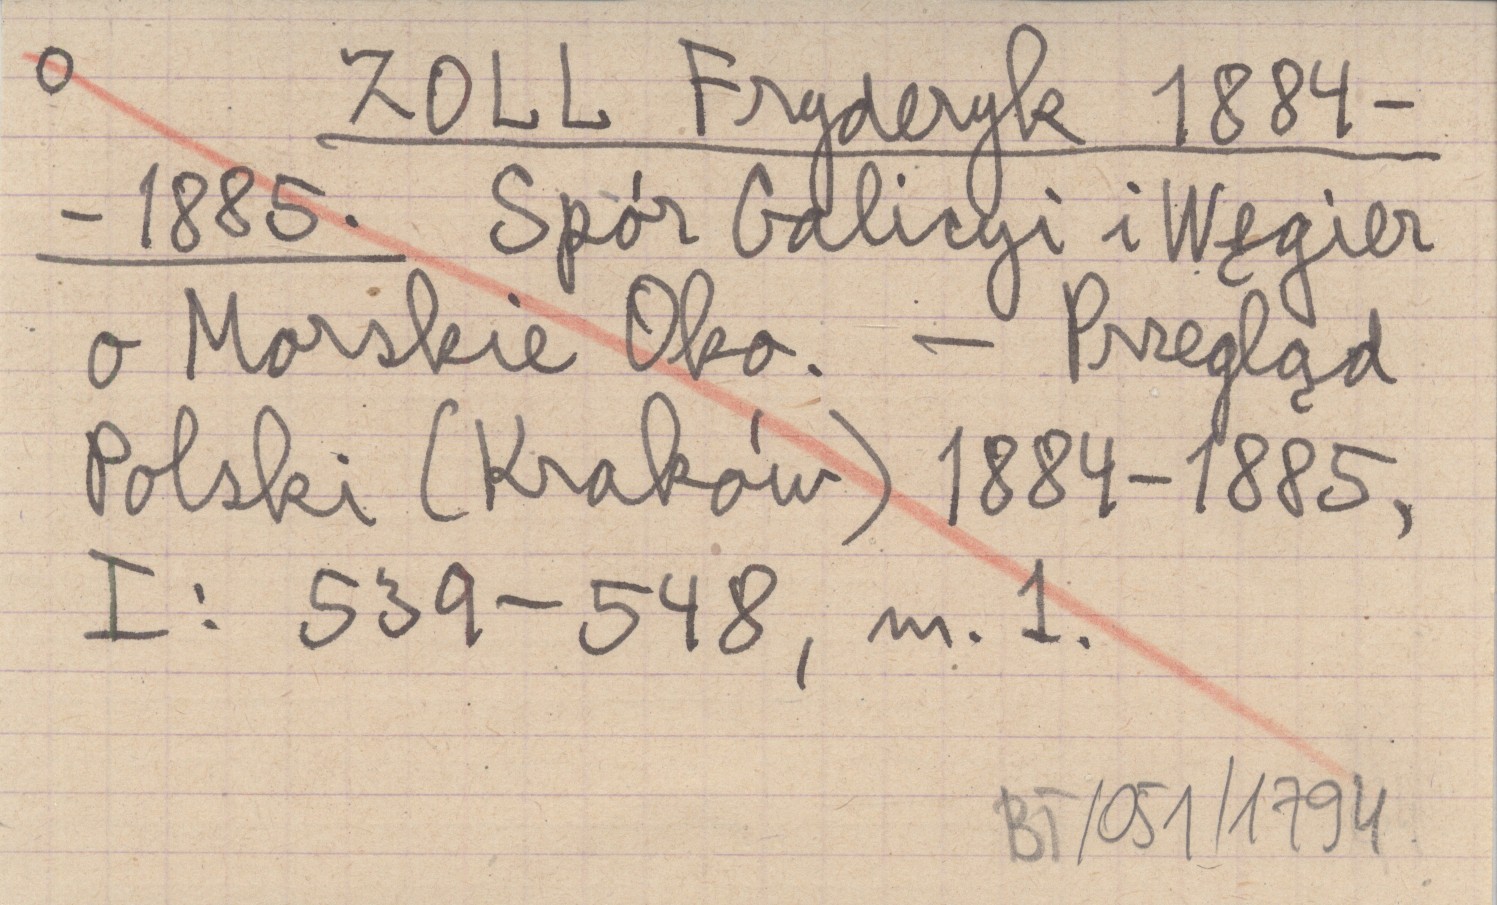 o ZOLL Fryderyk 1884-
-1885. Spór Galicyi i Węgier
o Morskie Oko. — Przegląd
Polski (Kraków) 1884-1885,
I: 539-548, m. 1.
BT/051/1794